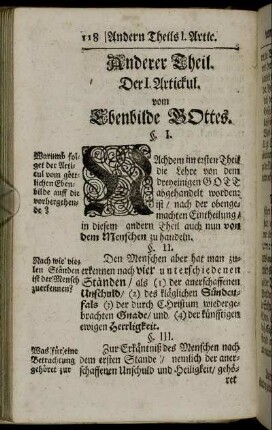 118 Andern Theils I. Artic.
Anderer Theil.
Der I. Artickul.
vom
Ebenbilde GOttes.
§. I.
Warumb fol-
get der Arti-
cul vom gött-
lichen Eben-
bilde auff die
vorhergehen-
de?
NAchdem im ersten Theil
die Lehre von dem
dreyeinigen GOTT
abgehandelt worden;
ist / nach der obenge-
machten Eintheilung /
in diesem andern Theil auch nun von
dem Menschen zu handeln.
§. II.
Nach wie vie-
len Ständen
ist der Mensch
zuerkennen?
Den Menschen aber hat man zu-
erkennen nach vier unterschiedenen
Ständen / als (1) der anerschaffenen
Unschuld / (2) des kläglichen Sünden-
falls (3) der durch Christum wiederge-
brachten Gnade / und (4) der künfftigen
ewigen Herrligkeit.
§. III.
Was für eine
Betrachtung
gehöret zur
Zur Erkäntniß des Menschen nach
dem ersten Stande / nemlich der aner-
schaffenen Unschuld und Heiligkeit / gehö-
ret